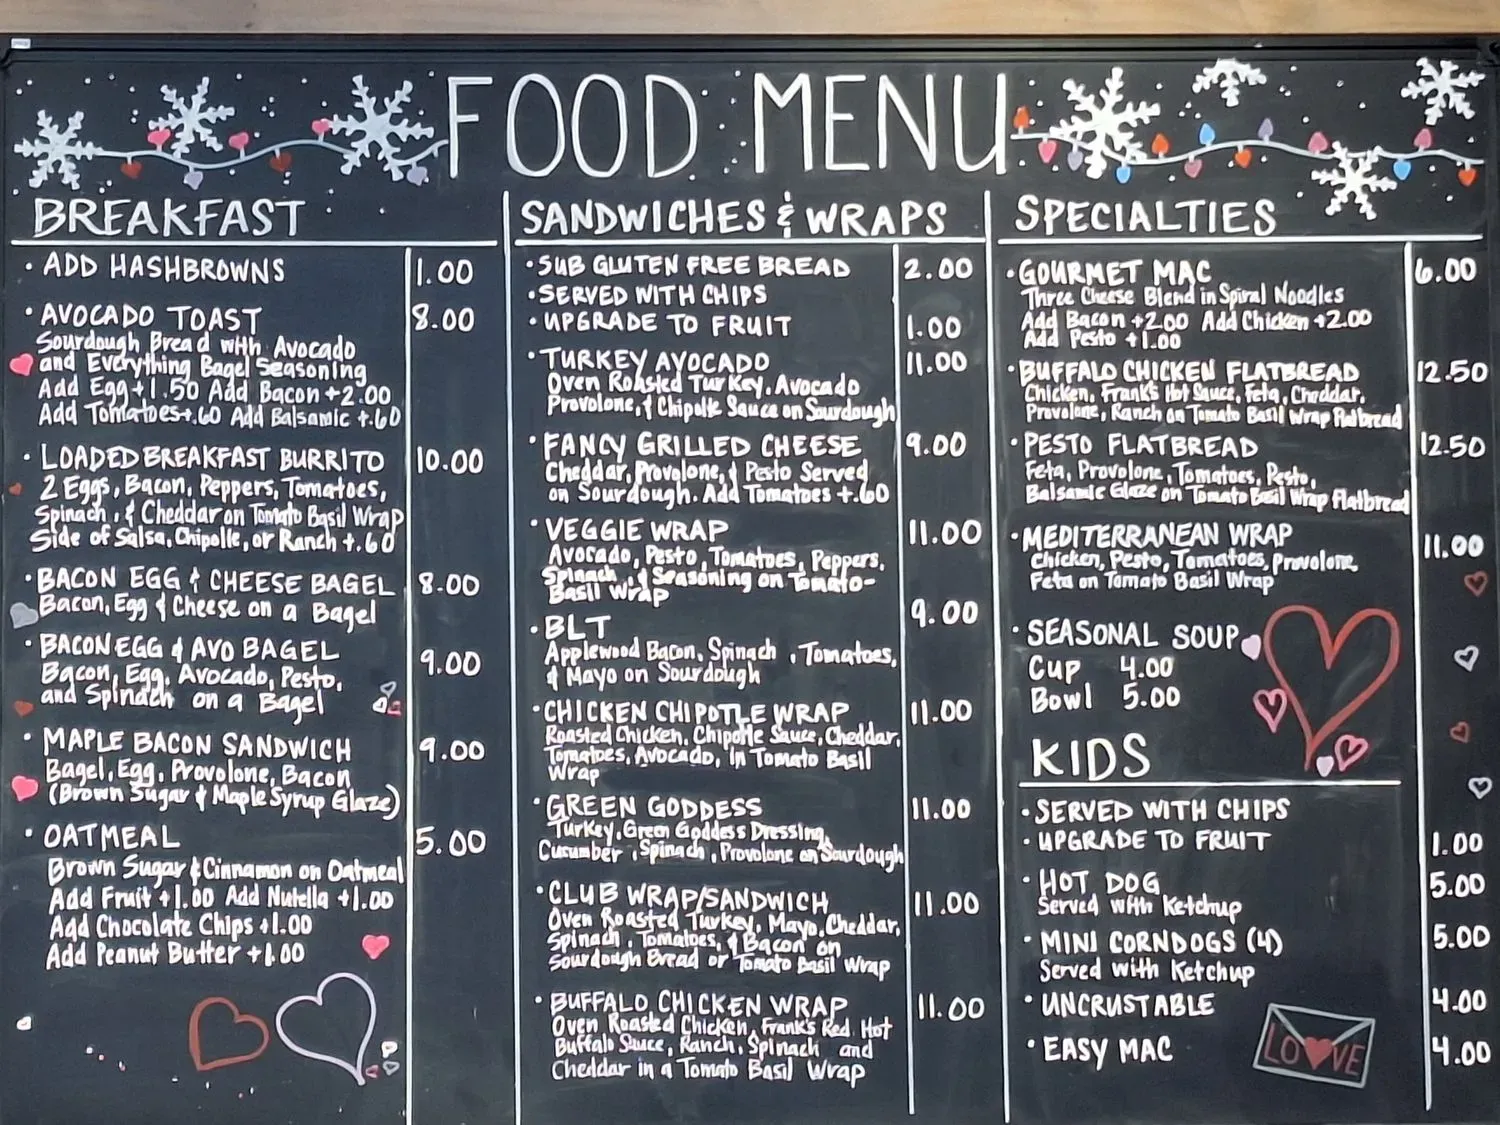 FOOD MENU
BREAKFAST
· ADD HASHBROWNS 1.00
· AVOCADO TOAST 8.00
Sourdough Bread with Avocado
and Everything Bagel Seasoning
Add Egg +1.50 Add Bacon +2.00
Add Tomatoes +.60 Add Balsamic +.60
· LOADED BREAKFAST BURRITO 10.00
2 Eggs, Bacon, Peppers, Tomatoes,
Spinach, & Cheddar on Tomato Basil Wrap
Side of Salsa, Chipolle, or Ranch +.60
· BACON EGG & CHEESE BAGEL 8.00
Bacon, Egg & Cheese on a Bagel
· BACON EGG & AVO BAGEL 9.00
Bacon, Egg, Avocado, Pesto,
and Spinach on a Bagel
· MAPLE BACON SANDWICH 9.00
Bagel, Egg, Provolone, Bacon
(Brown Sugar & Maple Syrup Glaze)
· OATMEAL 5.00
Brown Sugar & Cinnamon on Oatmeal
Add Fruit +1.00 Add Nutella +1.00
Add Chocolate Chips +1.00
Add Peanut Butter +1.00
SANDWICHES & WRAPS
· SUB GLUTEN FREE BREAD 2.00
· SERVED WITH CHIPS
· UPGRADE TO FRUIT 1.00
· TURKEY AVOCADO 11.00
Oven Roasted Turkey, Avocado
Provolone, & Chipotle Sauce on Sourdough
· FANCY GRILLED CHEESE 9.00
Cheddar, Provolone, & Pesto Served
on Sourdough. Add Tomatoes +.60
· VEGGIE WRAP 11.00
Avocado, Pesto, Tomatoes, Peppers,
Spinach, & Seasoning on Tomato-
Basil Wrap
· BLT 9.00
Applewood Bacon, Spinach, Tomatoes,
& Mayo on Sourdough
· CHICKEN CHIPOTLE WRAP 11.00
Roasted Chicken, Chipotle Sauce, Cheddar,
Tomatoes, Avocado, In Tomato Basil
Wrap
· GREEN GODDESS 11.00
Turkey, Green Goddess Dressing,
Cucumber, Spinach, Provolone on Sourdough
· CLUB WRAP/SANDWICH 11.00
Oven Roasted Turkey, Mayo, Cheddar,
Spinach, Tomatoes, & Bacon on
Sourdough Bread or Tomato Basil Wrap
· BUFFALO CHICKEN WRAP 11.00
Oven Roasted Chicken, Frank's Red Hot
Buffalo Sauce, Ranch, Spinach and
Cheddar in a Tomato Basil Wrap
SPECIALTIES
· GOURMET MAC 6.00
Three Cheese Blend in Spiral Noodles
Add Bacon +2.00 Add Chicken +2.00
Add Pesto +1.00
· BUFFALO CHICKEN FLATBREAD 12.50
Chicken, Frank's Hot Sauce, Feta, Cheddar,
Provolone, Ranch on Tomato Basil Wrap Flatbread
· PESTO FLATBREAD 12.50
Feta, Provolone, Tomatoes, Pesto,
Balsamic Glaze on Tomato Basil Wrap Flatbread
· MEDITERRANEAN WRAP 11.00
Chicken, Pesto, Tomatoes, Provolone,
Feta on Tomato Basil Wrap
· SEASONAL SOUP
Cup 4.00
Bowl 5.00
KIDS
· SERVED WITH CHIPS
· UPGRADE TO FRUIT 1.00
· HOT DOG 5.00
Served with Ketchup
· MINI CORNDOGS (4) 5.00
Served with Ketchup
· UNCRUSTABLE 4.00
· EASY MAC 4.00
LOVE